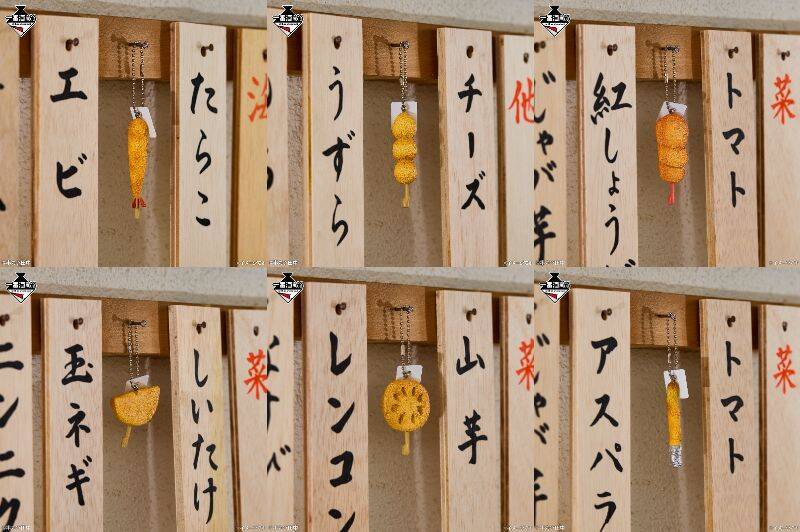 エビ
たらこ
うずら
チーズ
他
じゃが芋
紅しょうが
トマト
菜
ニンニク
玉ネギ
しいたけ
菜
レンコン
山芋
菜
じゃが芋
アスパラ
トマト
菜